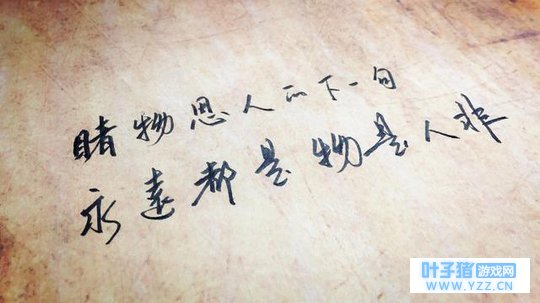 睹物思人的下一句
永远都是物是人非
叶子猪游戏网
WWW.YZZ.CN